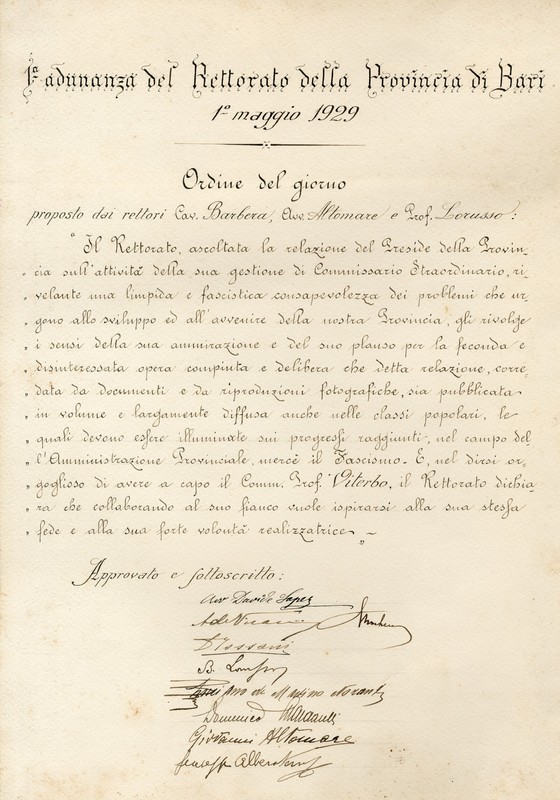 1ª adunanza del Rettorato della Provincia di Bari
1º maggio 1929
Ordine del giorno
proposto dai rettori Cav. Barbera, Avv. Altomare e Prof. Lorusso:
" Il Rettorato, ascoltata la relazione del Preside della Provin-
" cia sull'attività della sua gestione di Commissario Straordinario, ri-
" velante una limpida e fascistica consapevolezza dei problemi che ur-
" gono allo sviluppo ed all'avvenire della nostra Provincia, gli rivolge
" i sensi della sua ammirazione e del suo plauso per la feconda e
" disinteressata opera compiuta e delibera che detta relazione, corre-
" data da documenti e da riproduzioni fotografiche, sia pubblicata
" in volume e largamente diffusa anche nelle classi popolari, le
" quali devono essere illuminate sui progressi raggiunti, nel campo del-
" l'Amministrazione Provinciale, mercè il Fascismo. E, nel dirsi or-
" goglioso di avere a capo il Comm. Prof. Viterbo, il Rettorato dichia-
" ra che collaborando al suo fianco vuole ispirarsi alla sua stessa
" fede e alla sua forte volontà realizzatrice „ -
Approvato e sottoscritto:
Avv Davide Lopez
D Tossani
Domenico
Giovanni Altomare